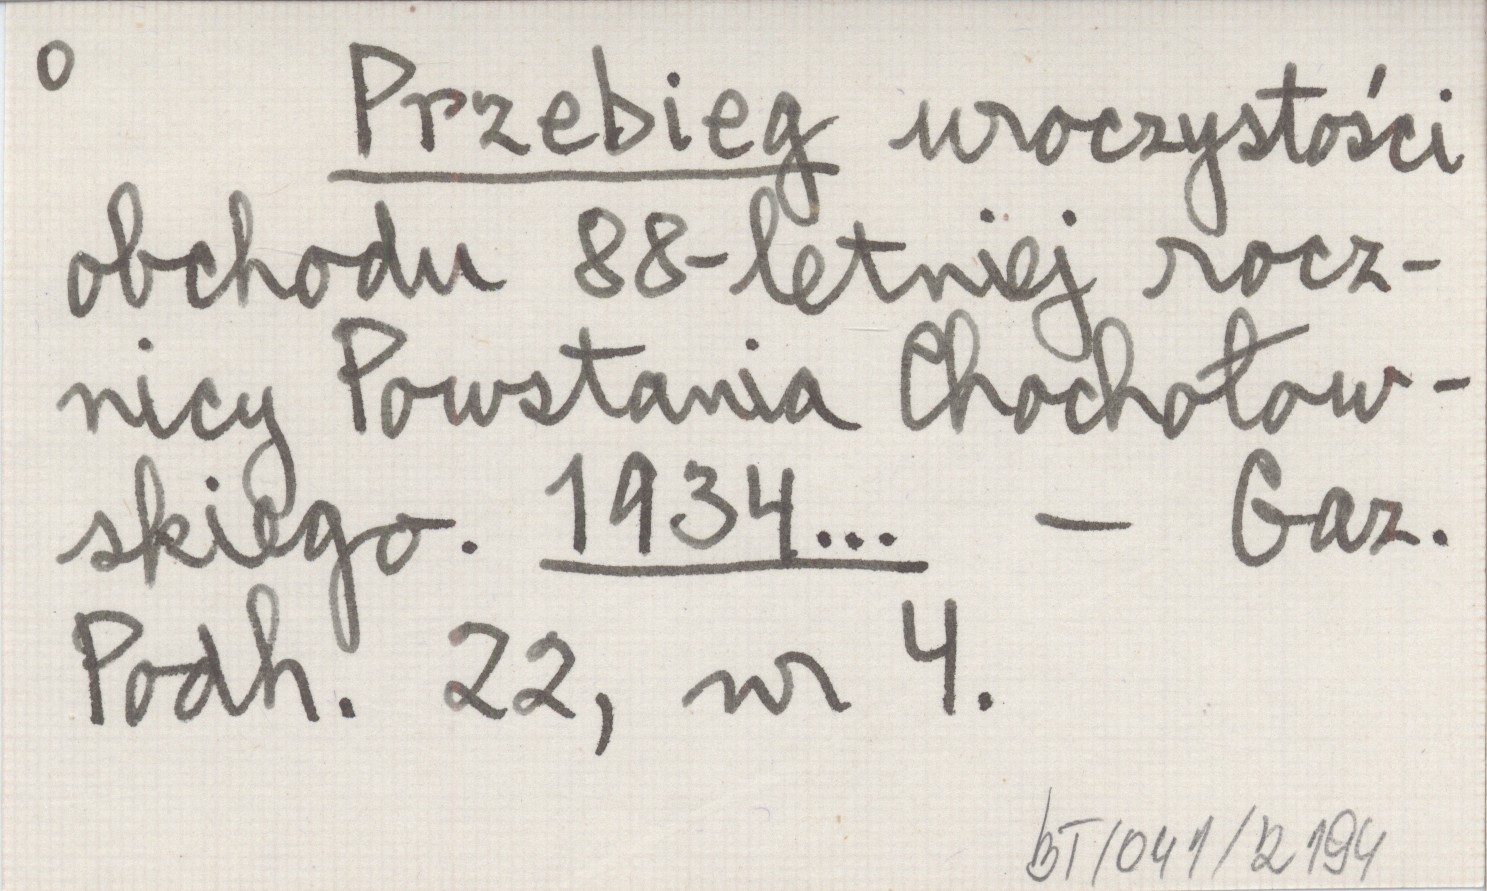 o Przebieg uroczystości
obchodu 88-letniej rocz-
nicy Powstania Chochołow-
skiego. 1934... — Gaz.
Podh. 22, nr 4.
BT/041/2194